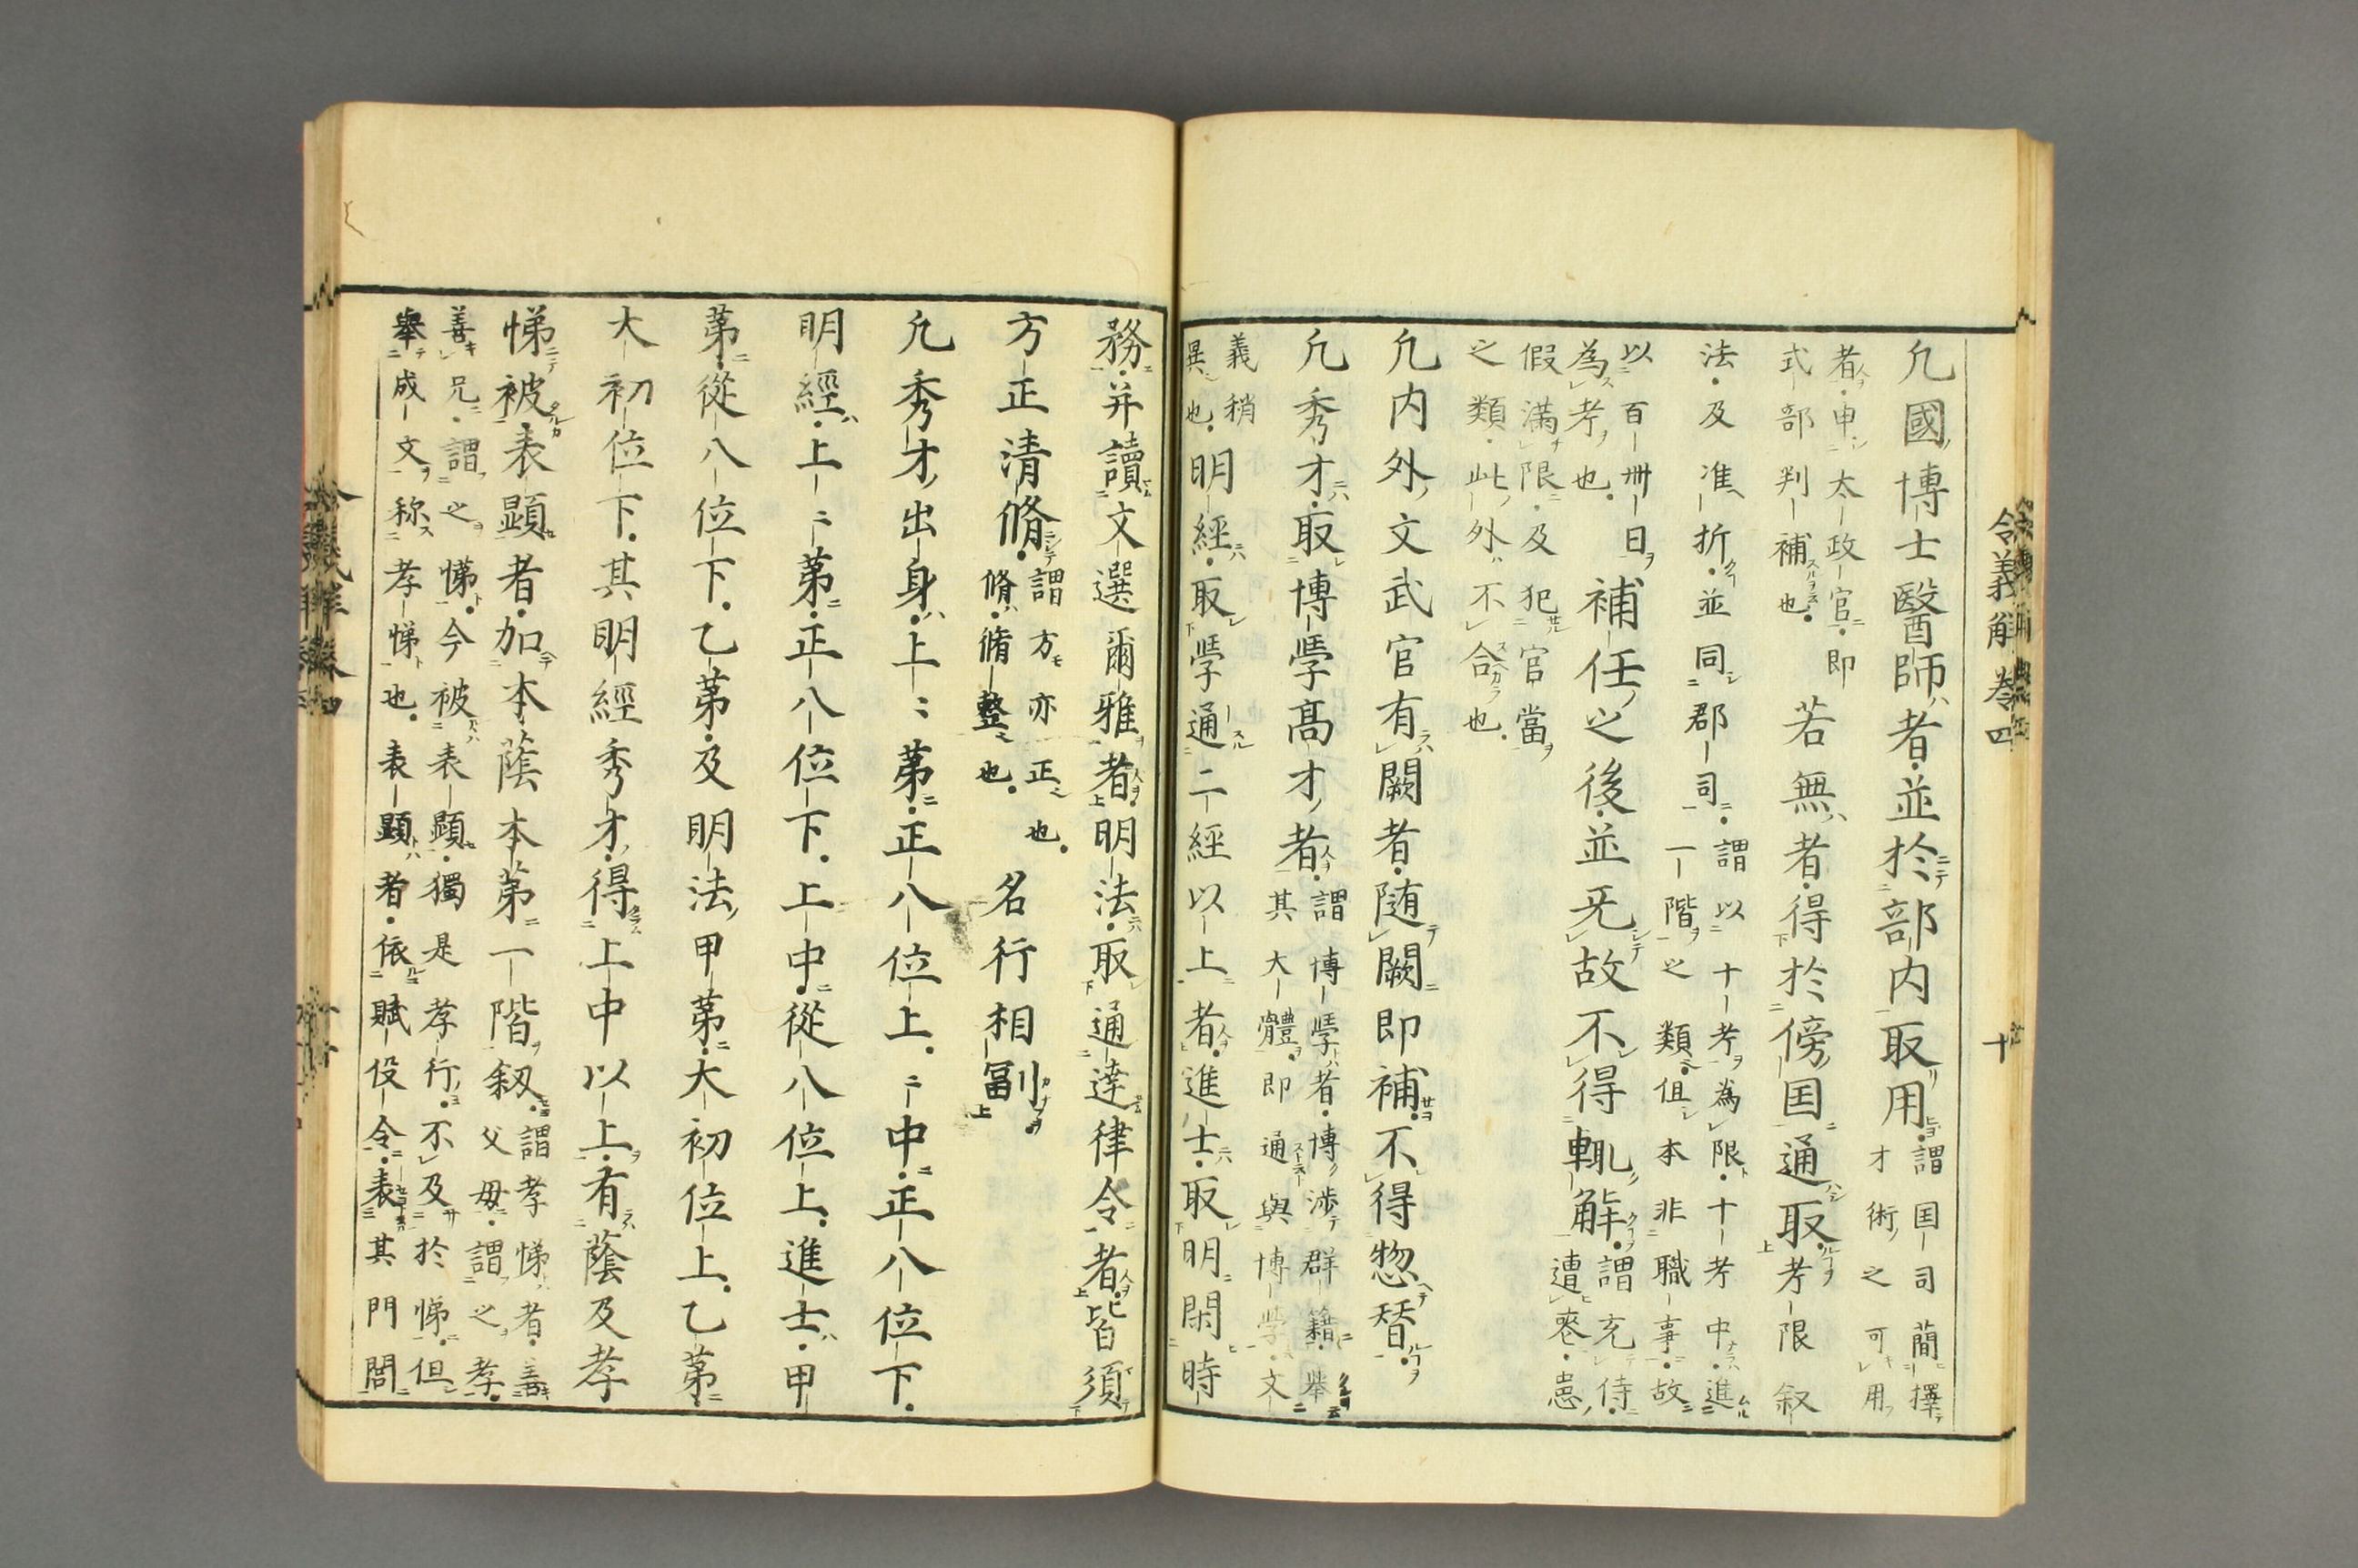 令義解巻四
十
凢國博士醫師者並於部内取用謂国司簡擇才術之可用
者申太政官即式部判補也若無者得於傍国通取考限叙
法及准折並同郡司謂以十考為限十考中進一階之類但本非職事故
以百卌日為考也補任之後並无故不得輙解謂充侍遭喪患
假滿限及犯官當之類此外不合也
凢内外文武官有闕者随闕即補不得惣替
凢秀才取博學高才者謂博學者博渉群籍舉其大體即通與博學文
義稍異也明經取學通二經以上者進士取明閑時
務并讀文選爾雅者明法取通達律令者皆須
方正清脩謂方亦正也脩脩整也名行相副
凢秀才出身上〻第正八位上〻中正八位下
明經上〻第正八位下上中從八位上進士甲
第從八位下乙第及明法甲第大初位上乙第
大初位下其明經秀才得上中以上有蔭及孝
悌被表顕者加本蔭本第一階叙謂孝悌者善父母謂之孝
善兄謂之悌今被表顕獨是孝行不及於悌但舉成文称孝悌也表顕者依賦役令表其門閭